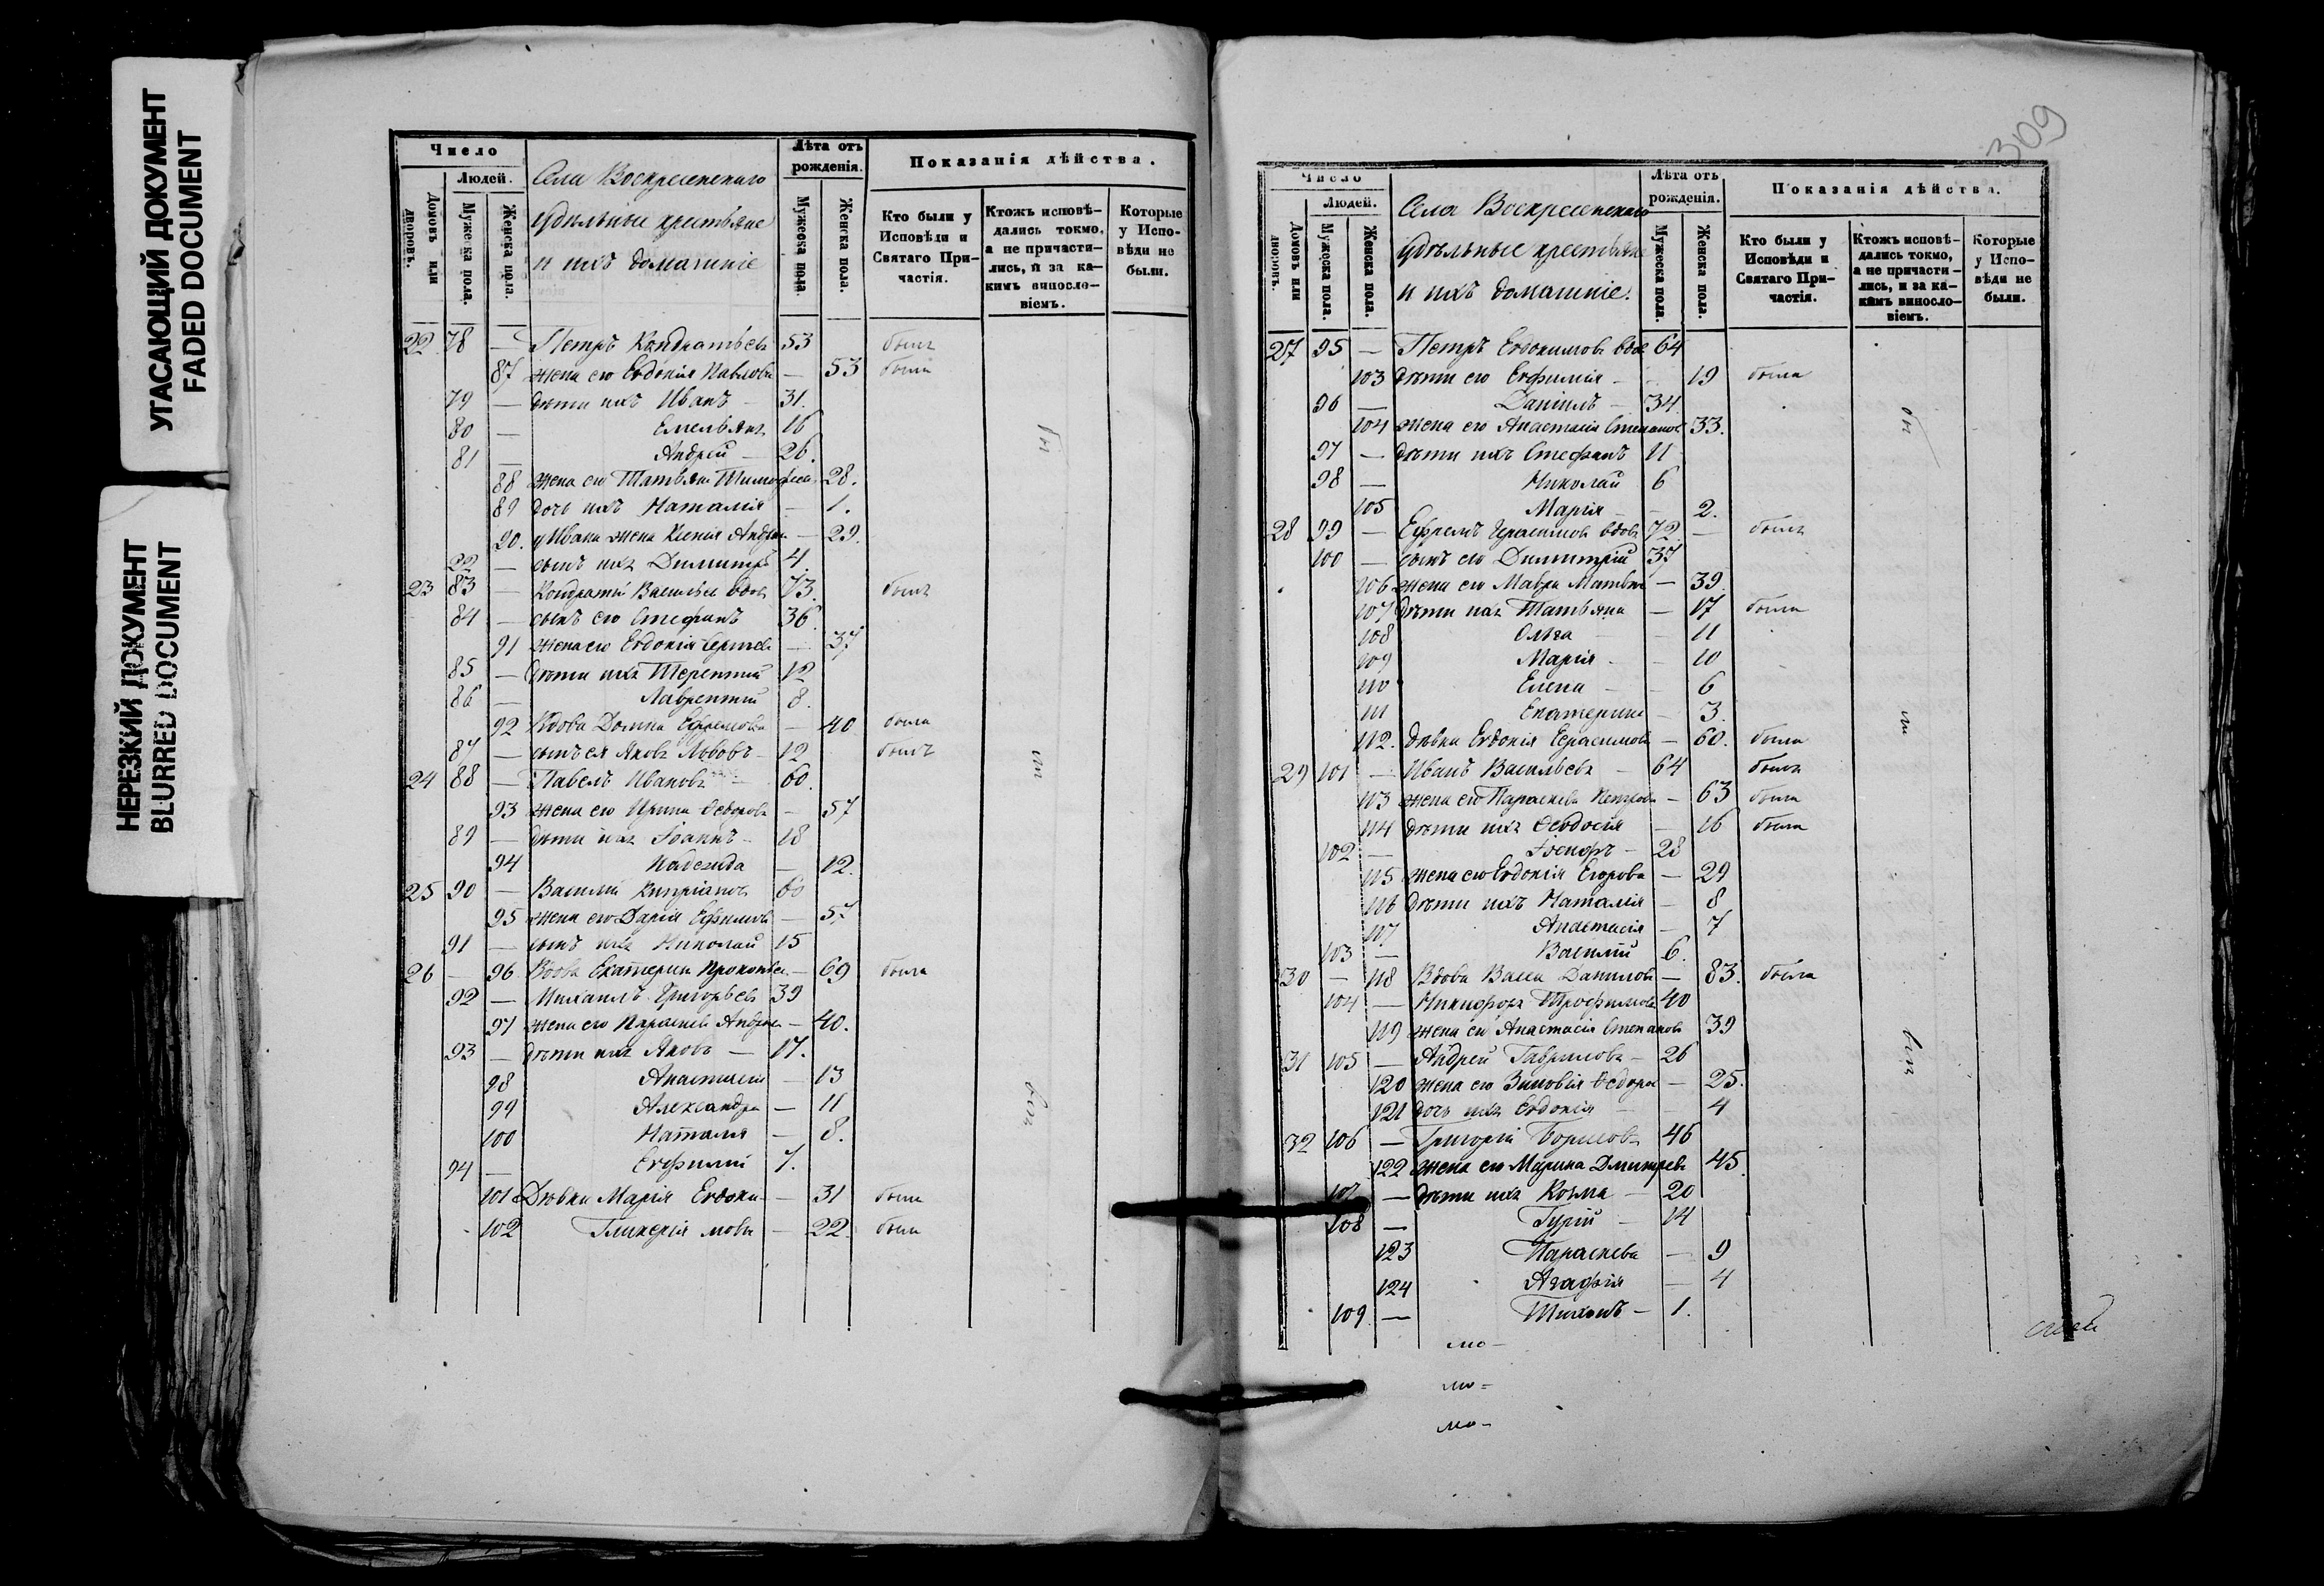 УГАСАЮЩИЙ ДОКУМЕНТ
FADED DOCUMENT
НЕРЕЗКИЙ ДОКУМЕНТ
BLURRED DOCUMENT
Число
Людей.
Домовъ или дворовъ.
Мужеска пола.
Женска пола.
Села Воскресенскаго
удѣльные крестьяне
и ихъ домашніе
Лѣта отъ рожденія.
Мужеска пола.
Женска пола.
Показанія дѣйства.
Кто были у Исповѣди и Святаго Причастія.
Ктожъ исповѣдались токмо, а не причастились, и за какимъ винословіемъ.
Которые у Исповѣди не были.
22 78 — Петръ Кондратьевъ 53 былъ
87 жена его Евдокія Павлова — 53 была
79 — дѣти ихъ Иванъ — 31.
80 — Емельянъ 16
81 — Андрей — 26.
88 жена его Татьяна Тимофеев 28.
89 дочь ихъ Наталія — 1.
90. у Ивана жена Ксенія Андре — 29.
22 — сынъ ихъ Димитрій 4.
23 83 — Кондратій Васильев вдов 73. былъ
84 — сынъ его Стефанъ 36.
91 жена его Евдокія Сергеева — 37
85 — дѣти ихъ Терентій 12
86 — Лаврентій 8.
92 Вдова Домна Ефремова — 40 была
87 — сынъ ея Яковъ Львовъ — 12 былъ
24 88 — Павелъ Ивановъ 60.
93 жена его Ирина Ѳедорова — 57
89 — дѣти ихъ Іоаннъ — 18
94 Надежда — 12.
25 90 — Василій Кипріановъ 60
95 жена его Дарія Ефимов — 57
91 — сынъ ихъ Николай 15
26 — 96 Вдова Екатерина Прокопьев — 69 была
92 — Михаилъ Григорьевъ 39
97 жена его Параскева Андрее — 40.
93 — дѣти ихъ Яковъ — 17.
98 Анастасія — 13
99 Александра — 11
100 Наталія — 8.
94 — Евфимій 7.
101 Дѣвки Марія Евдоки — 31 была
102 Гликерія мовы — 22. была
309
Число
Людей.
Домовъ или дворовъ.
Мужеска пола.
Женска пола.
Села Воскресенскаго
удѣльные крестьяне
и ихъ домашніе.
Лѣта отъ рожденія.
Мужеска пола.
Женска пола.
Показанія дѣйства.
Кто были у Исповѣди и Святаго Причастія.
Ктожъ исповѣдались токмо, а не причастились, и за какимъ винословіемъ.
Которые у Исповѣди не были.
27 95 — Петръ Евдокимовъ вдов 64
103 дѣти его Евфимія — 19 была
96 — Даніилъ — 34.
104 жена его Анастасія Степанов 33.
97 — дѣти ихъ Стефанъ 11
98 — Николай 6
105 Марія — 2.
28 99 — Ефремъ Герасимов вдов 72. — былъ
100 — сынъ его Димитрій 37
106 жена его Мавра Матве — 39.
107 дѣти ихъ Татьяна — 17 была
108 Ольга — 11
109 Марія — 10
110 Елена — 6
111 Екатерина — 3.
112. дѣвка Евдокія Герасимова — 60. была
29 101 — Иванъ Васильевъ — 64 былъ
113 жена его Параскева Петрова — 63 была
114 дѣти ихъ Ѳеодосія — 16 была
102 — Іосифъ — 28
115 жена его Евдокія Егорова — 29
116 дѣти ихъ Наталія — 8
117 Анастасія — 7
103 — Василій 6.
30 — 118 Вдова Васса Данилова — 83. была
104 — Никифоръ Трофимовъ 40
119 жена его Анастасія Степанов 39
31 105 — Андрей Гавриловъ — 26
120 жена его Зиновія Ѳедоро — 25.
121 дочь ихъ Евдокія — 4
32 106 — Григорій Борисовъ 46
122 жена его Марина Дмитрев 45.
107 — дѣти ихъ Козма — 20
108 — Гурій — 14
123 Параскева — 9
124 Агафія — 4
109 — Тихонъ — 1.
мо-
мо-
мо-